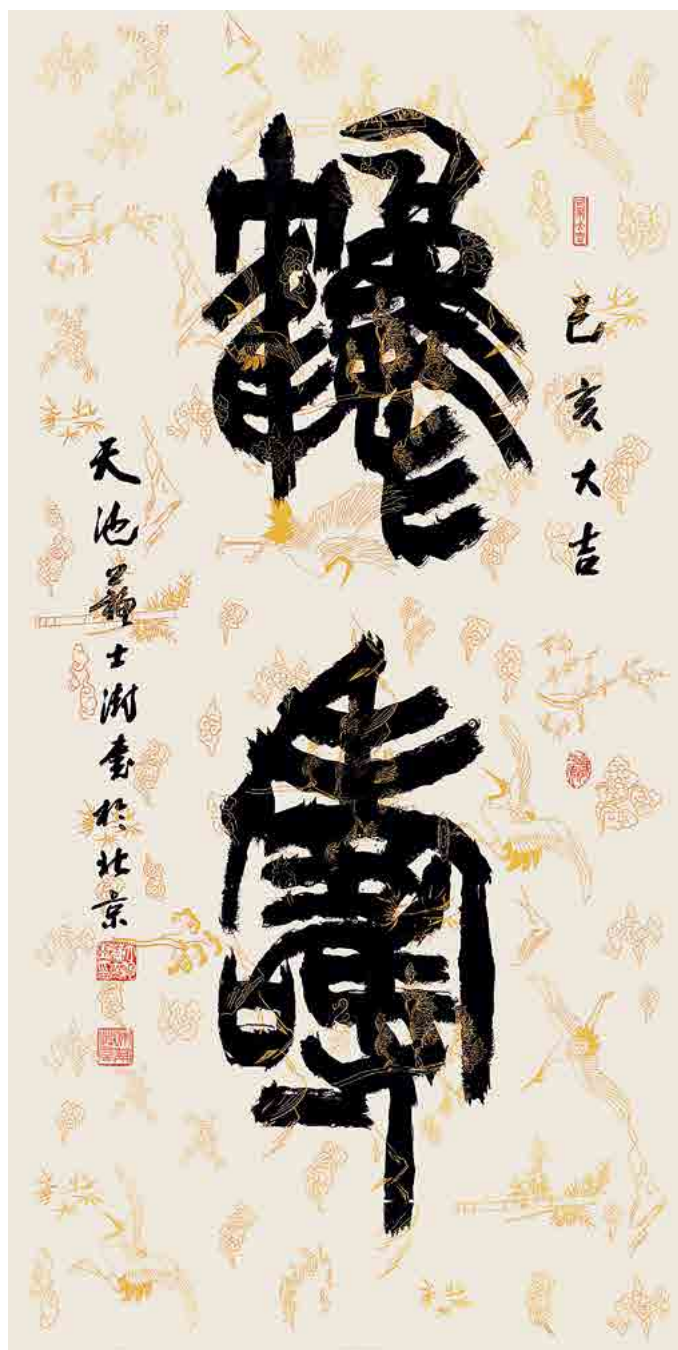 己亥大吉
壽
天池蘇士澍書於北京